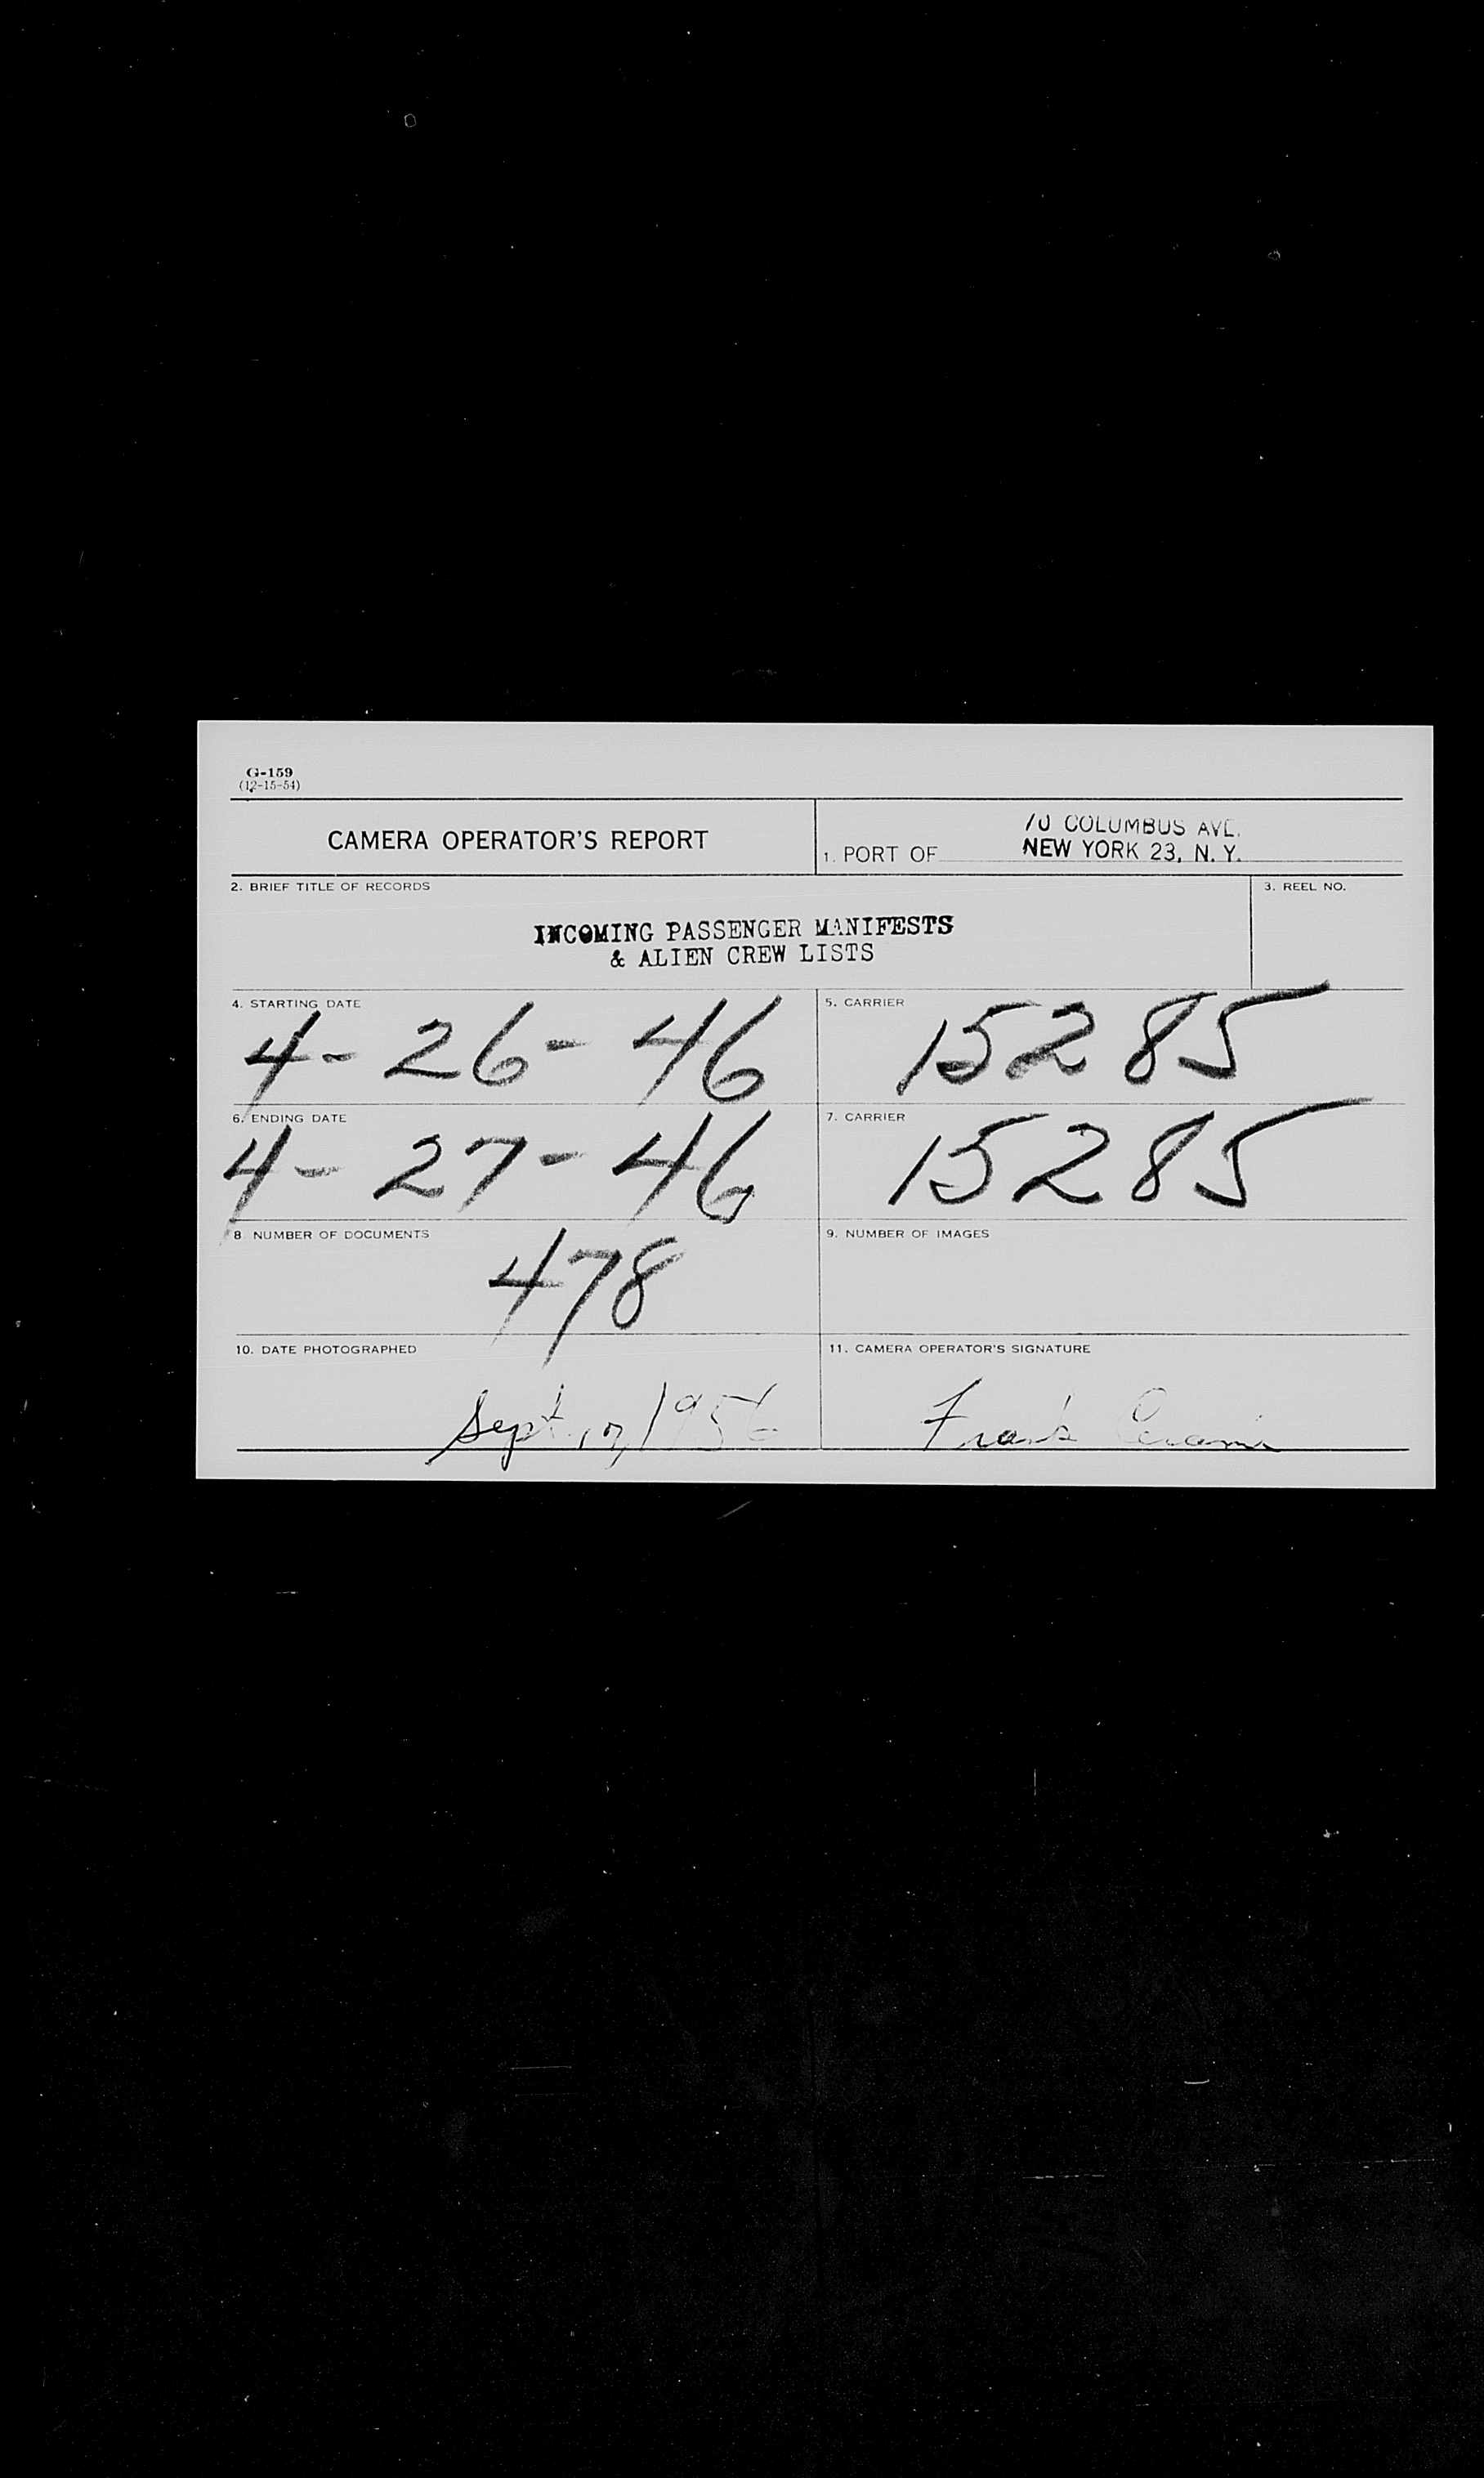 G-159
(12-15-54)
CAMERA OPERATOR'S REPORT
70 COLUMBUS AVE.
1. PORT OF NEW YORK 23, N. Y.
2. BRIEF TITLE OF RECORDS
3. REEL NO.
INCOMING PASSENGER MANIFESTS
& ALIEN CREW LISTS
4. STARTING DATE
4-26-46
5. CARRIER
15285
6. ENDING DATE
4-27-46
7. CARRIER
15285
8 NUMBER OF DOCUMENTS
478
9. NUMBER OF IMAGES
10. DATE PHOTOGRAPHED
Sept. 1956
11. CAMERA OPERATOR'S SIGNATURE
Frank